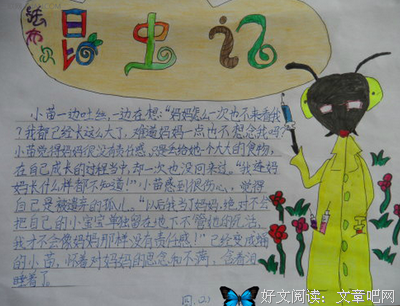 法布尔
昆虫记
小苗一边吐丝,一边在想:“妈妈怎么一次也不来看我
?我都已经长这么大了,难道妈妈一点也不想念我吗?”
小苗觉得妈妈很没有责任感,只是丢给她一个大大的食物,
在自己成长的过程当中,却一次也没回来过。“我连妈
妈长什么样都不知道!”小苗感到很伤心,觉得
自己是被遗弃的孤儿。“以后我当了妈妈,绝对不会
把自己的小宝宝单独留在地下不管他的死活,
我才不会像妈妈那样没有责任感!”已经变成蛹
的小苗,怀着对妈妈的思念和不满,含着泪
睡着了。
好文阅读:文章吧网